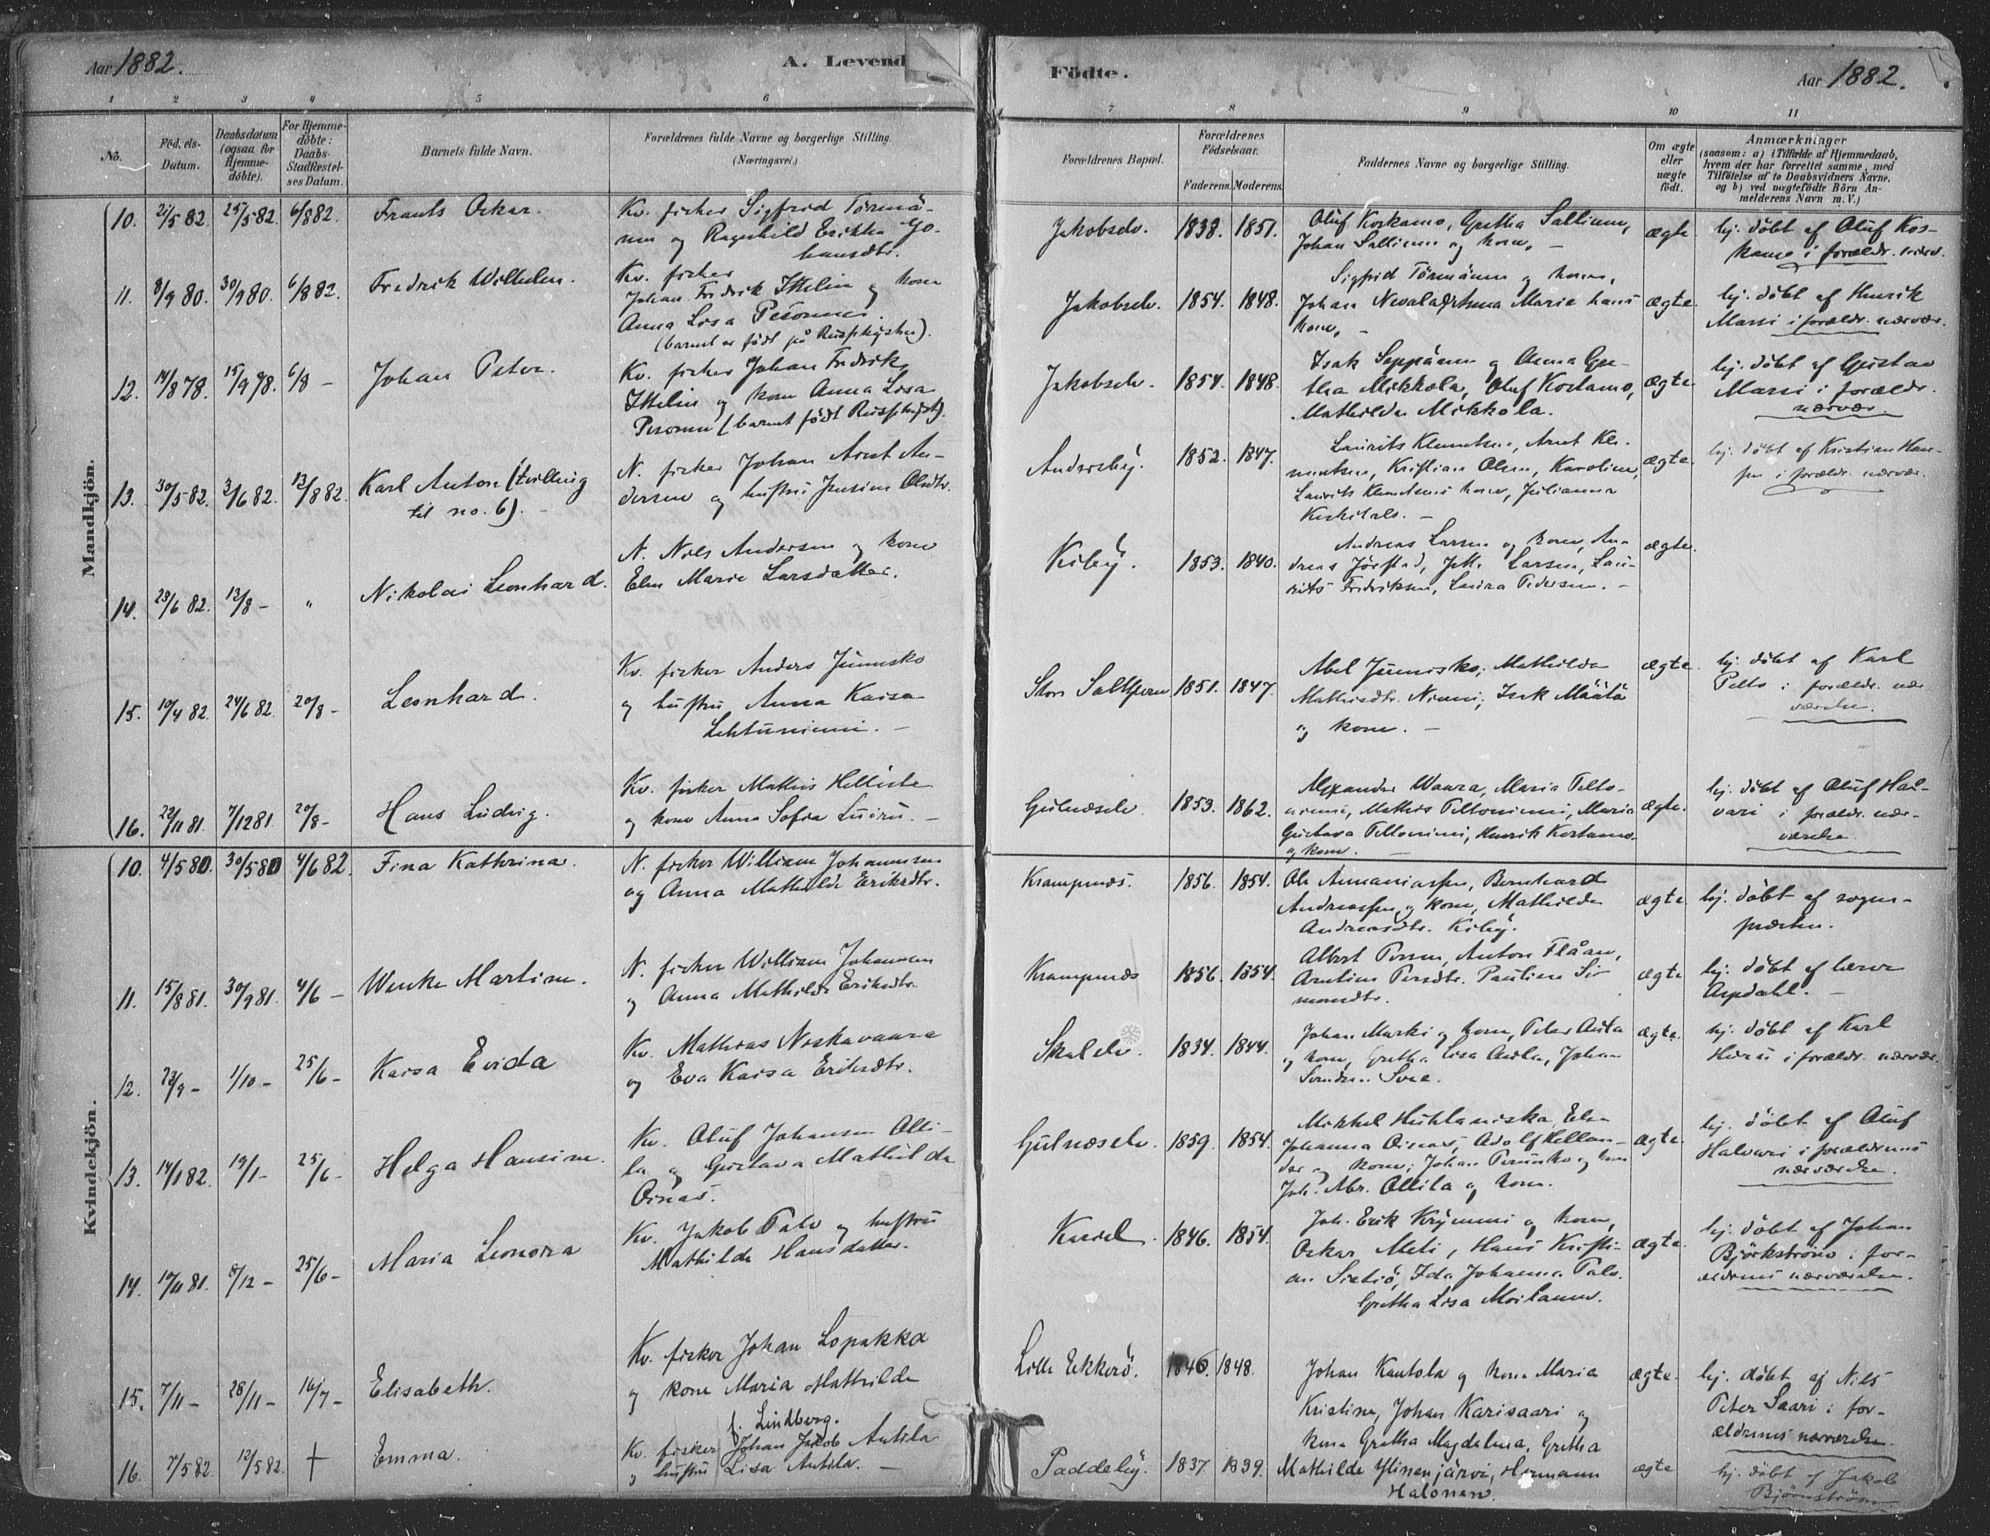 Aar 1882.
A. Levend
Födte.
Aar 1882.
1 2 3 4 5 6 7 8 9 10 11
No.
Föd.els-
Datum.
Daabsdatum
(ogsaa for
Hjemme-
döbte).
For Hjemme-
döbte:
Daabs-
Stadfæstel-
ses Datum.
Barnets fulde Navn.
Forældrenes fulde Navne og borgerlige Stilling.
(Næringsvei.)
Forældrenes Bopæl.
Forældrenes
Födselsaar.
Faderens. Moderens.
Faddernes Navne og borgerlige Stilling.
Om ægte
eller
uægte
födt.
Anmærkninger
(saasom: a) i Tilfælde af Hjemmedaab,
hvem der har forrettet samme, med
Tilföielse af to Daabsvidners Navne,
og b) ved uægtefödte Börn An-
melderens Navn m. V.)
Mandkjön.
10. 21/5 82. 25/5 82. 6/8 82. Frants Oskar.
Kv. fisker Sigfrid Törmä-
nen og Ragnhild Erikka Jo-
hansdtr.
Jakobselv. 1838. 1851.
Oluf Koskamo, Gretha Sallinen,
Johan Sallinen og kone, –
ægte
hj. döbt af Oluf Kos-
kamo i forældr. nærv.
11. 8/9 80. 30/9 80. 6/8 82. Fredrik Wilhelm.
Kv. fisker
Johan Fredrik Ikelin og kone
Anna Lisa Pesonen.
(barnet er födt på Russekysten).
Jakobselv 1854. 1848.
Sigfrid Törmänen og kone,
Johan Nevala, Anna Maria hans
kone, –
ægte.
hj. döbt af Henrik
Marsi i forældr. nærvær.
12. 14/8 78. 15/9 78. 6/8 – Johan Peter.
Kv. fisker Johan Fredrik
Ikelin og kone Anna Lisa
Pesonen (barnet födt Russekyst).
Jakobselv. 1854. 1848.
Isak Seppänen og Anna Gre-
tha Mikkola, Oluf Kostamo,
Mathilda Mikkola.
ægte.
hj. döbt af Gustav
Marsi i forældr.
nærvær.
13. 30/5 82. 3/6 82. 13/8 82. Karl Anton (tvilling
til no. 6). –
N. fisker Johan Arnt An-
dersen og hustru Jensine Olsdtr.
Andersby. 1852. 1847.
Laurits Klemetsen, Arnt Kle-
metsen, Kristian Olsen, Karoline,
Laurits Klemetsens kone, Julianna
Kiskitalo. –
ægte.
hj. döbt af Kristian Han-
sen i forældr. nærvær.
14. 23/6 82. 13/8 – " Nikolai Leonhard.
N. Nils Andersen og kone
Elen Marie Larsdatter.
Kiby. 1853. 1840.
Andreas Larsen og kone, An-
dreas Jörstad, Larsen, Lau-
rits Fredriksen, Laura Pedersen. –
ægte.
15. 10/4 82. 24/6 82. 20/8 – Leonhard.
Kv. fisker Anders Junnsko
og hustru Anna Kaisa
Lehtuniemi. –
Store Saltjern 1851. 1847.
Abel Junnisko, Mathilda
Mathisdtr. Niemi, Isak Määtä
og kone. –
ægte.
hj. döbt af Karl
Pelto i forældr. nær-
værelse.
16. 22/11 81. 7/12 81. 20/8 – Hans Ludvig.
Kv. fisker Mathis Helliste
og kone Anna Sofia Luiru. –
Gulnæselv. 1853. 1862.
Alexander Waara, Maria Pelto-
niemi, Mathis Peltoniemi, Maria
Gustava Peltoniemi, Henrik Kostamo
og kone. –
ægte.
hj. döbt af Oluf Hal-
vari i forældr. nær-
værelse.
Kvindekjön.
10. 4/5 80. 30/5 80 4/6 82. Fina Kathrina.
N. fisker William Johannesen
og Anna Mathilde Eriksdtr.
Krampenæs. 1856. 1854.
Ole Annaniassen, Bernhard
Andreassen og kone, Mathilde
Andreasdtr. Kiby.
ægte
hj. döbt af sogne-
præsten.
11. 15/8 81. 30/9 81. 4/6 – Wenke Martine.
N. fisker William Johannesen
og Anna Mathilde Eriksdtr.
Krampenæs 1856. 1854.
Albert Persen, Anton Flåan,
Arntine Persdtr. Pauline Si-
monsdtr.
ægte
hj. döbt af lærer
Aspdahl. –
12. 23/9 – 1/10 – 25/6 – Kaisa Evida
Kv. Mathias Niskavaara
og Eva Kaisa Eriksdtr.
Skalelv. 1834. 1844.
Johan Marki og kone, Peter Anta
og kone, Gretha Lisa Anola, Johan
ægte.
hj. döbt af Karl
i forældr. nærvær.
13. 14/1 82. 19/1 – 25/6 – Helga Hansine.
Kv. Oluf Johansen Olli-
la og Gustava Mathilda
Oinas.
Gulnæselv. 1859. 1854.
Mikkel Huhtaniska, Elen
Johanna Oinas, Adolf Hellan-
der og kone, Johan Perunko og kone
Joh. Abr. Ollila og kone.
ægte
hj. döbt af Oluf
Halvari i forældrenes
nærværelse.
14. 10/11 81. 8/12 – 25/6 – Maria Leonora
Kv. Jakob Palo og hustru
Mathilda Hansdatter.
1846. 1854.
Joh. Erik Krymmi og kone,
Oskar Meti, Hans Kristi-
an Sietiö, Ida Johanna Palo.
Gretha Lisa Moilanen.
ægte.
hj. döbt af Johan
Björkström i for-
ældrenes nærværelse.
15. 7/11 – 28/11 – 16/7 – Elisabeth.
Kv. fisker Johan Lopakka
og kone Maria Mathilde
f. Lindberg.
Lille Ekkerö. 1846. 1848.
Johan Kantola og kone Maria
Kristine, Johan Karisaari og
kone Gretha Magdalena, Gretha
ægte.
hj. döbt af Nils
Peter Saari i for-
ældrenes nærværelse.
16. 7/5 82. 12/5 82. † Emma.
Kv. fisker Johan Jakob Antila
og hustru Lisa Antila. –
Paddeby. 1837. 1839.
Mathilde Ylinenjärvi, Hermann
Halonen.
ægte
hj. döbt af Jakob
Björnström